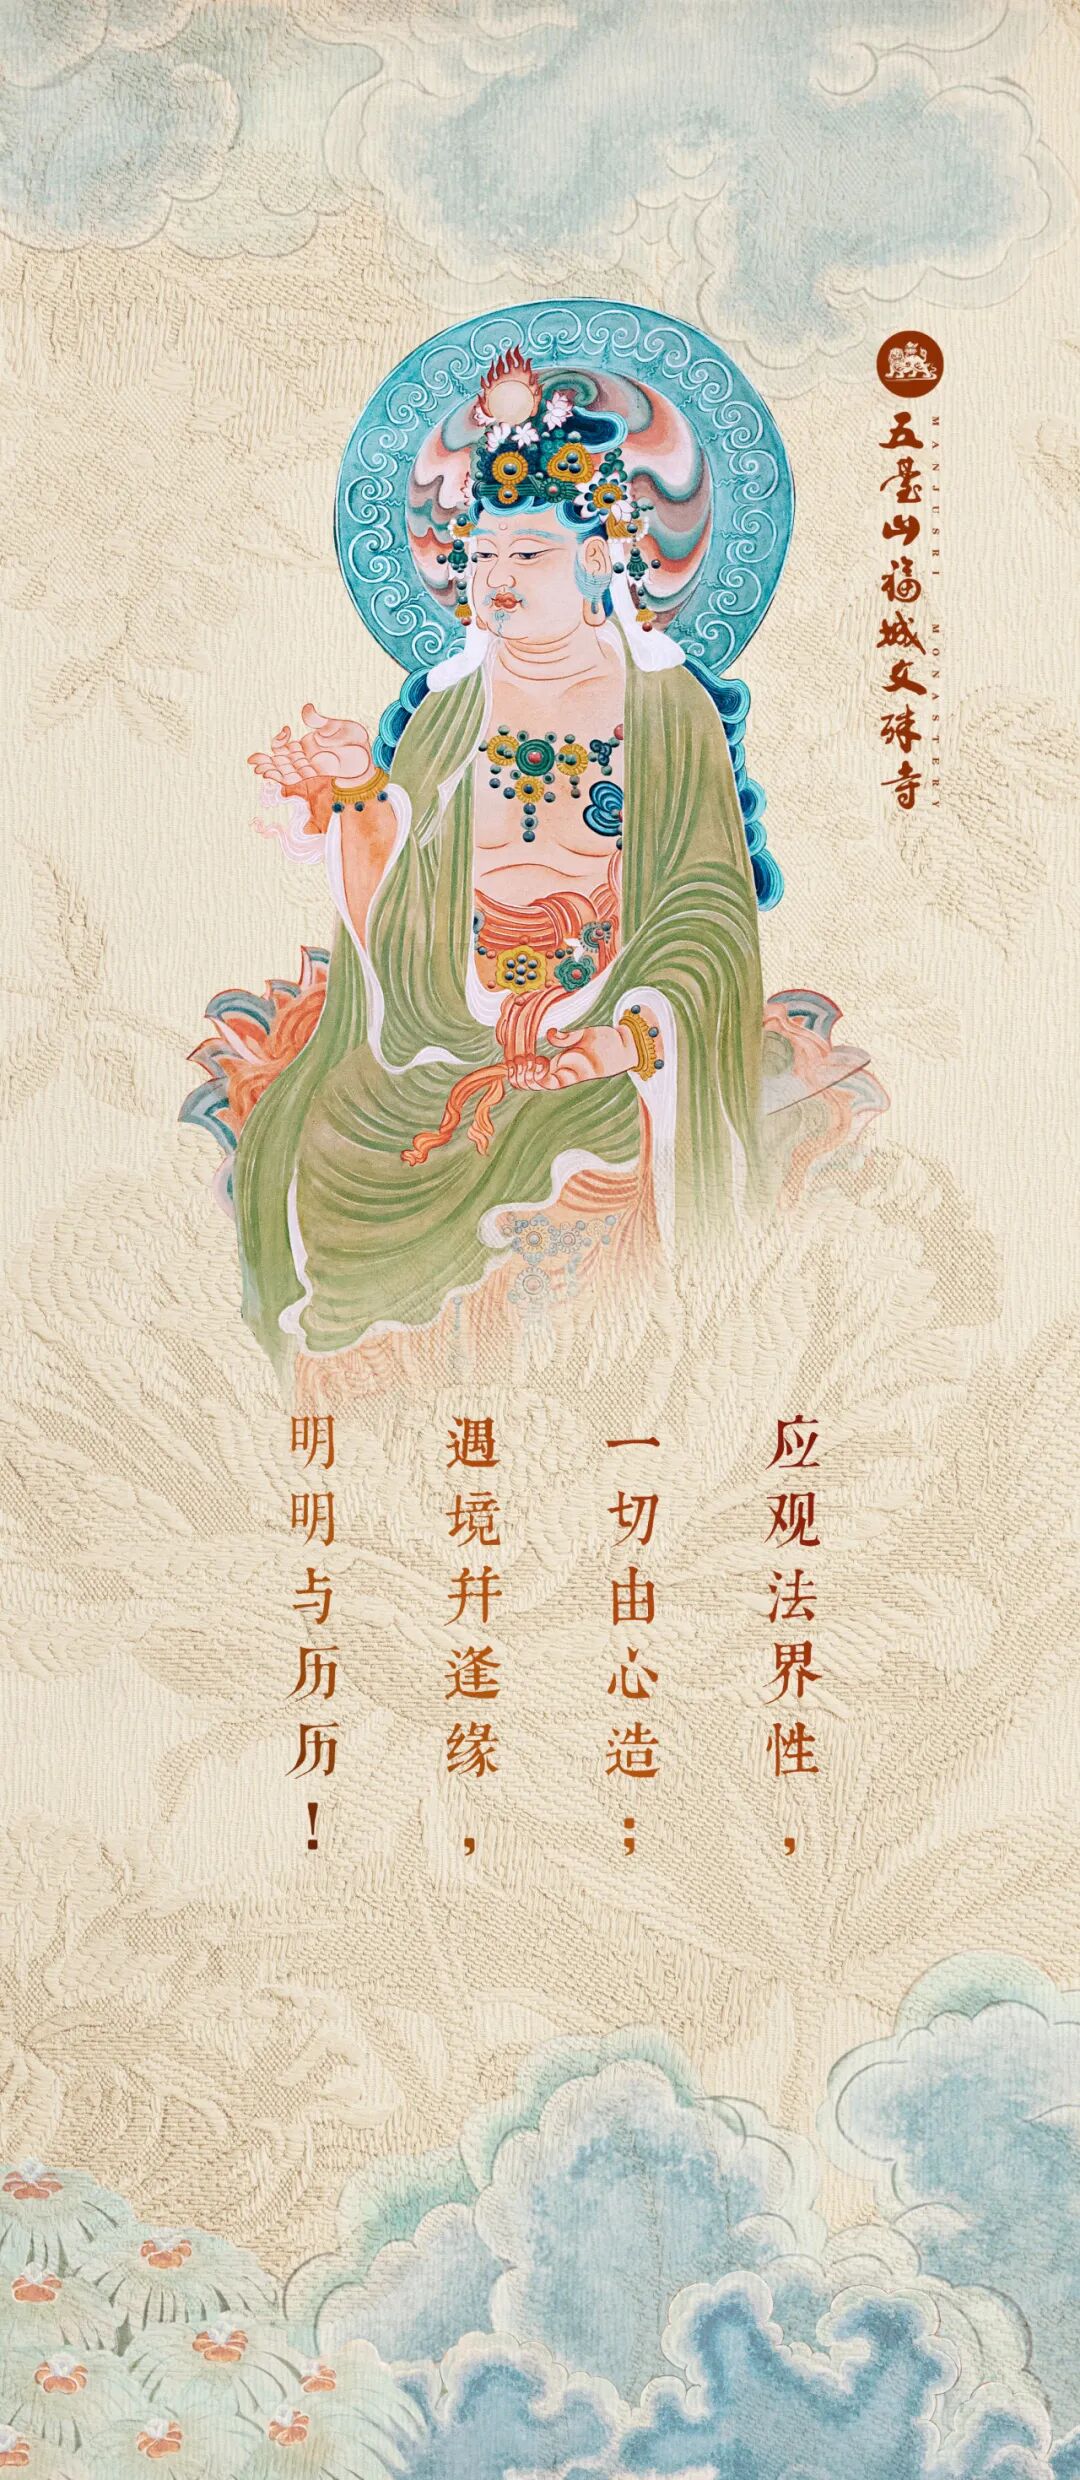 五臺山福城文殊寺
MANJUSRI MONASTERY
应观法界性，
一切由心造；
遇境并逢缘，
明明与历历！